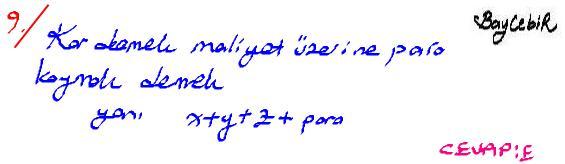 9/
BayCebiR
Kar demek maliyet üzerine para
koymak demek
yani x+y+z+ para
CEVAP:E